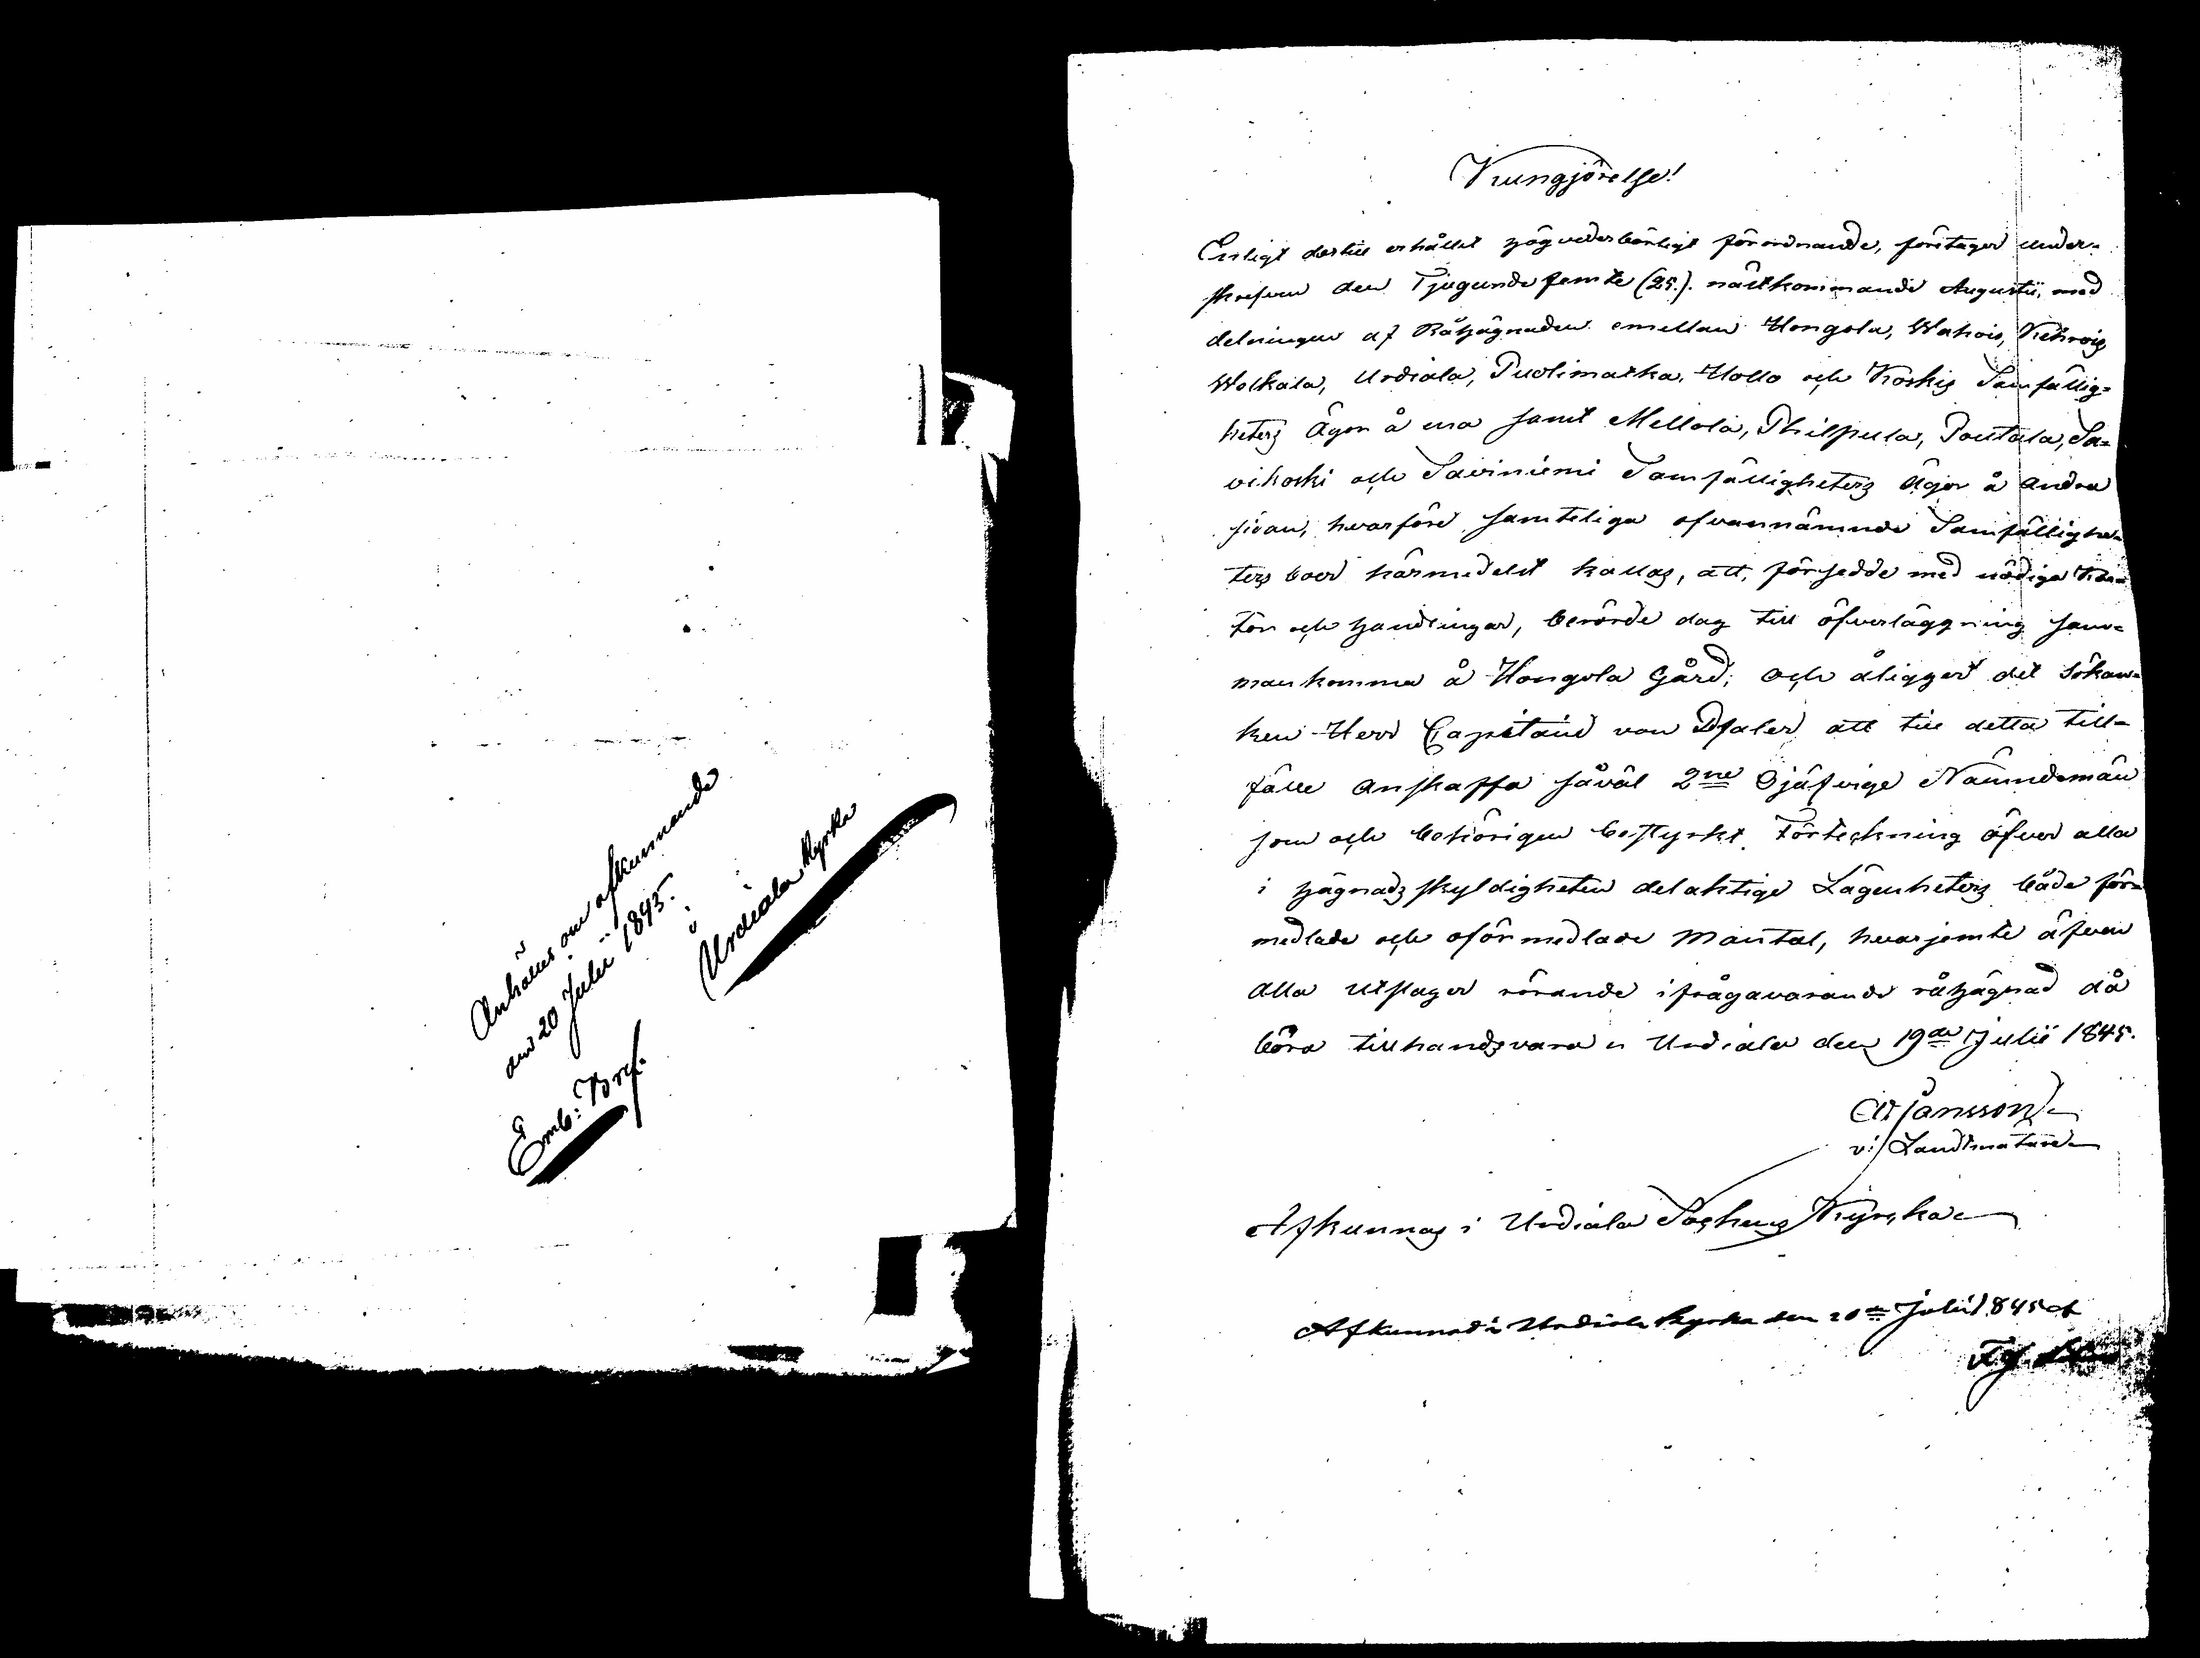 Anhålles om afkunnande
den 20 Julii 1845.
i
Urdiala Kyrka
Emb: Bref.
Kungjörelse!
Enligt dertill erhållit högvederbörligt förordnande, företager under-
skrefven den Tjugundefemte (25.) nästkommande Augustii, med
delningen af Råhägnaden emellan Hongola, Wahois, Kehrois
Wolkala, Urdiala, Puolimatka, Hollo och Koskis Samfällig-
heters Ägor å ena samt Mellola, Philpula, Poutala, Sa-
vikoski och Saviniemi Samfälligheters Ägor å andra
sidan, hvarföre samteliga ofvannämnde Samfällighe-
ters boer härmedelst kallas, att, försedde med nödiga Kar-
tor och handlingar, berörde dag till öfverläggning sam-
mankomma å Hongola Gård; och åligger det Sökan-
ken Herr Capitaine von Pfaler att till detta till-
fälle anskaffa såväl 2ne Ojäfvige Nämndemän
som och behörigen bestyrkt Förteckning öfver alla
i hägnads skyldigheten delaktige Lägenheters både för-
medlade och oförmedlade Mantal, hvarjemte äfven
alla Utslager rörande ifrågavarande råhägnad då
böra tillhandsvara. Urdiala den 19de Julii 1845.
Jansson
v: Landtmätare
Afkunnas i Urdiala Sockens Kyrka
Afkunnad i Urdiala Kyrka den 20de Julii 1845 af